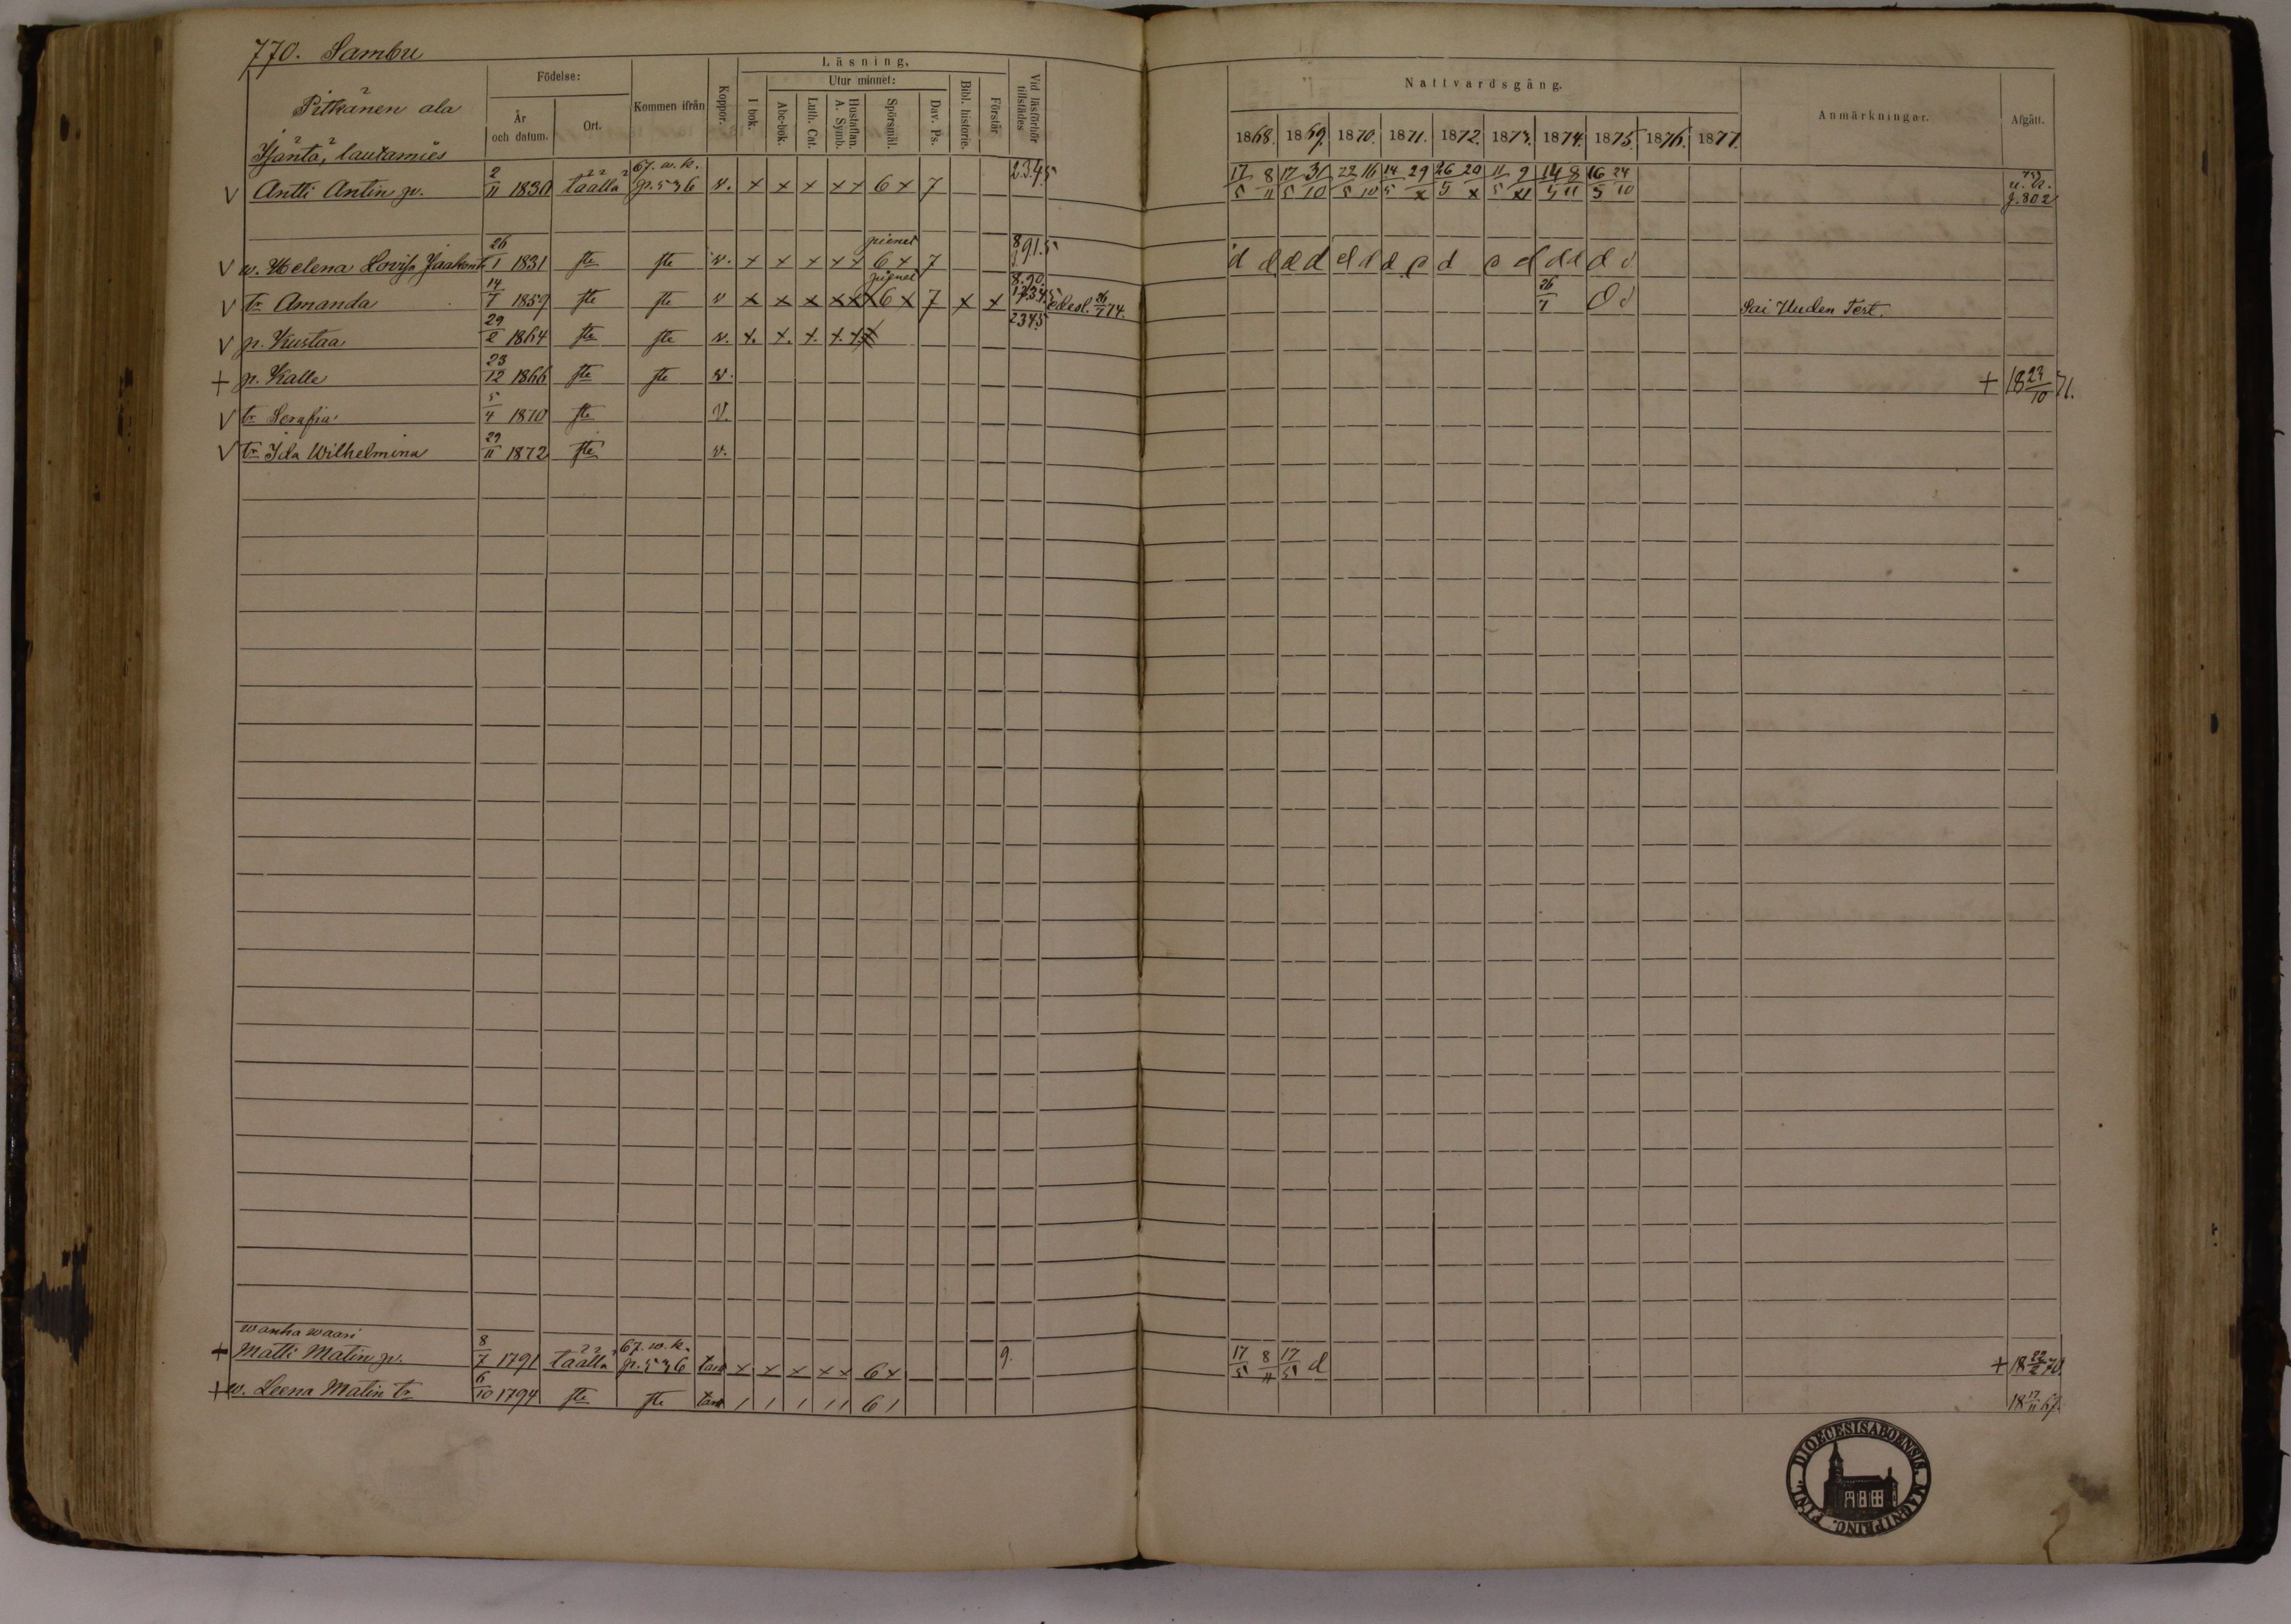 770. Sambu
Pitkänen ala
Födelse:
År och datum.
Ort.
Kommen ifrån
Koppor.
Läsning.
I bok.
Utur minnet:
Abc-bok.
Luth. Cat.
Hustaflan. A. Symb.
Spörsmål.
Dav. Ps.
Bibl. historie.
Förstår
Vid läsförhör tillstädes
Nattvardsgång.
1868. 1869. 1870. 1871. 1872. 1873. 1874. 1875. 1876. 1877.
Anmärkningar.
Afgått.
Isäntä, lautamies
V Antti Antin p. 2/11 1830 täällä 67. w. k. p. 536 v. x x x x x 6 x 7 2.3.4.5 17/5 8/11 17/5 31/10 22/5 16/10 14/5 29/x 26/5 20/x 11/5 9/XI 14/5 8/11 16/5 24/10 p. 802
V w. Helena Lovisa Jaakont. 26/1 1831 ste ste v. x x x x x pienet 6 x 7 8.91.5 d d d d d d d d d d d d d d
V tr Amanda 14/7 1859 ste ste v x x x x x x pienet 6 x 7 x x 26/7 74. 26/7 Sai Uuden Test.
V p. Kustaa 29/2 1864 ste ste v. x. x. x. x. x 2345
+ p. Kalle 23/12 1866 ste ste v. + 18 23/10 71.
V tr Serafia 5/4 1870 ste V.
V tr Ida Wilhelmina 29/11 1872 ste v.
wanha waari
+ Matti Matin p. 8/7 1791 täällä 67. w. k. p. 536 x x x x x 6 x 9. 17/5 8/11 17/5 d + 18 22/2 70.
+ w. Leena Matin tr 6/10 1794 ste ste 1 1 1 1 1 6 1 18 17/11 67.
DIOECESIS ABOENSIS. MAGNI PRINC. FINL.